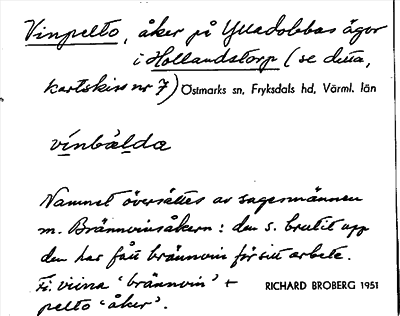 Vinpelto, åker på Ylladobbas ägor
i Hollandstorp (se detta,
kartskiss nr 7) Östmarks sn, Fryksdals hd, Värml. län
vínbæ̀lda
Namnet översättes av sagesmännen
m. Brännvinsåkern: den s. brutit upp
den har fått brännvin för sitt arbete.
Fi. viina 'brännvin' +
pelto 'åker'.
RICHARD BROBERG 1951